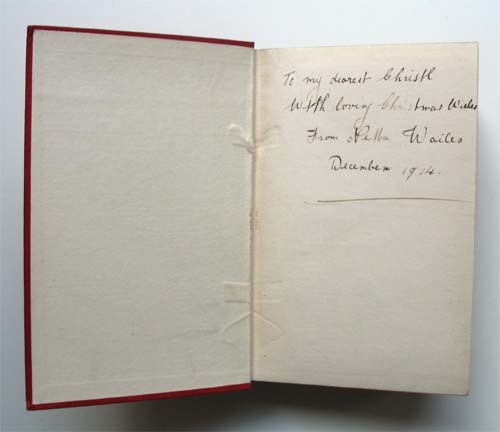 To my dearest Christl
With loving Christmas Wishes
From Wailes
December 1914.